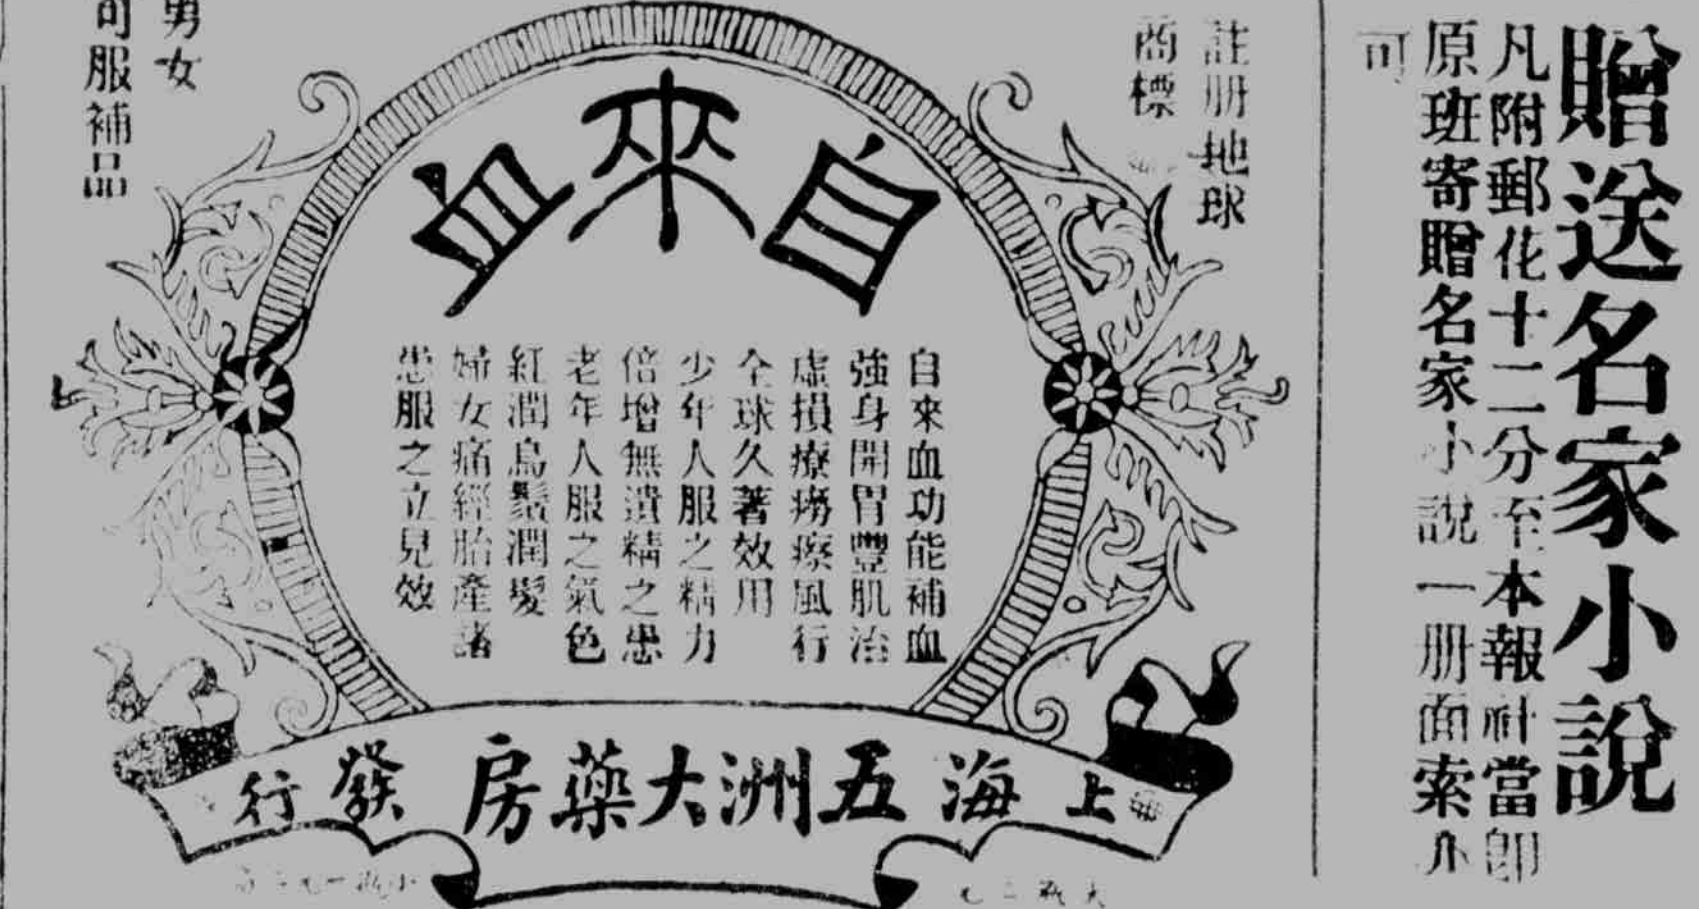 贈送名家小說
凡附郵花十二分至本報社當即
原班寄贈名家小說一册面索亦
可
註册地球
商標
自來血
自來血功能補血
強身開胃豐肌治
虛損療癆瘵風行
全球久著效用
少年人服之精力
倍增無遺精之患
老年人服之氣色
紅潤烏鬚潤髮
婦女痛經胎產諸
患服之立見效
男女
可服補品
上海五洲大藥房發行
大瓶二元